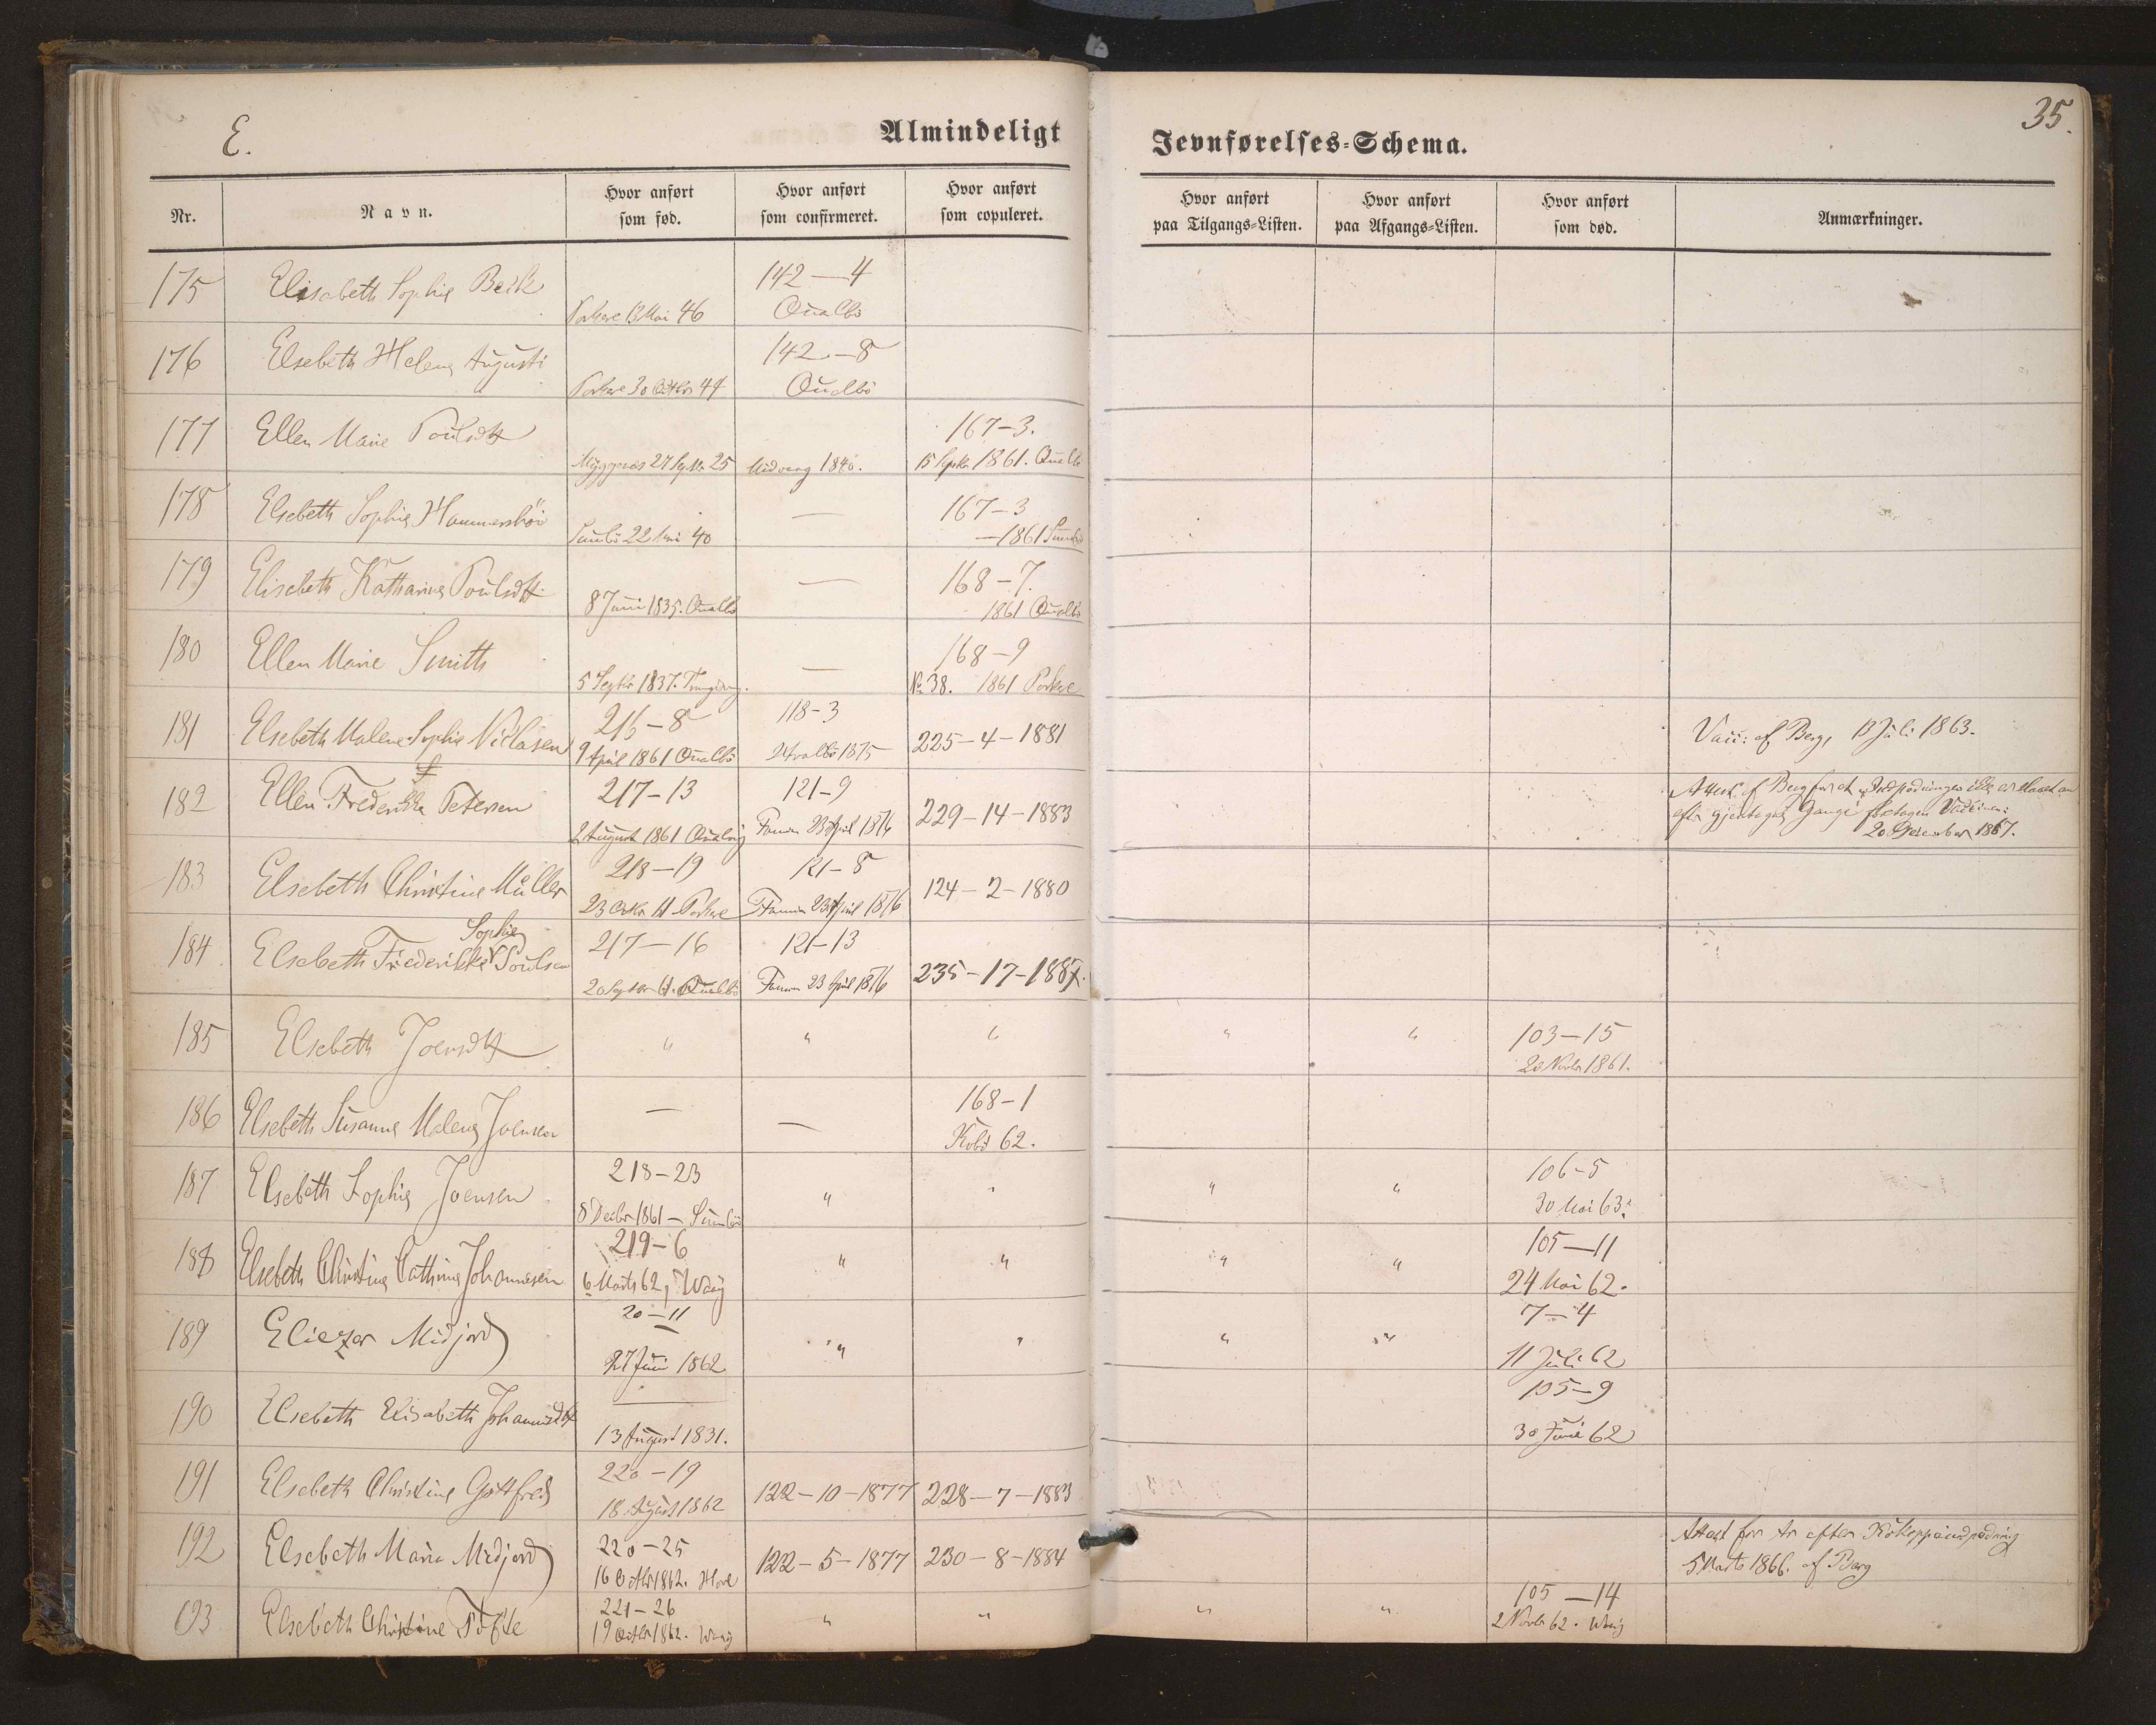 E.
Almindeligt Jevnførelses-Schema.
35.
Nr. Navn. Hvor anført som fød. Hvor anført som confirmeret. Hvor anført som copuleret. Hvor anført paa Tilgangs-Listen. Hvor anført paa Afgangs-Listen. Hvor anført som død. Anmærkninger.
175 Elisabeth Sophie Beck 142—4
Porkere 13 Mai 46 Qualbö
176 Elsebeth Helene Augusti 142—8
Porkere 30 Octbr 44 Qualbö
177 Ellen Marie Poulsdtt 167—3.
Myggenæs 27 Septbr 25 Midvaag 1840. 15 Septbr 1861. Qualb
178 Elsebeth Sophie Hammershöi — 167—3
Sumbö 22 40 —1861 Sumbö
179 Elisebeth Katharine Poulsdtt — 168—7.
8 Juni 1835. Qualbö 1861 Qualbö
180 Ellen Marie Smith — 168—9
5 Septbr 1837. No. 38. 1861 Porkere
181 Elsebeth Malene Sophie Niclasen 216—8 118—3 225—4—1881 Vacc: af Berg, 13 Juli 1863.
9 April 1861 Qualbö 1875
182 Ellen Frederikke Petersen 217—13 121—9 229—14—1883 Attest. af Berg for at
2 August 1861 Famien 23 April 1876 efter gjentagne Gange foretagen
20 December 1867.
183 Elsebeth Christine Müller 218—19 121—8 124—2—1880
23 Octbr 61 Porkere Famien 23 April 1876
184 Elsebeth Friederikke Sophie Poulsen 217—16 121—13 235—17—1887.
20 Septbr 61. Qualbö Famien 23 April 1876
185 Elsebeth Joensdtt " " " " " 103—15
20 Novbr 1861.
186 Elsebeth Susanne Malene Joensen — — 168—1
62.
187 Elsebeth Sophie Joensen 218—23 " " " " 106—5
8 Decbr 1861 — Sumbö 30 Mai 63.
188 Elsebeth Christine Cathrine Johannesen 219—6 " " " " 105—11
6 Marts 62, Waag 24 Mai 62.
189 Eliezer Midjord 20—11 " " " " 7—4
27 Juni 1862 11 Juli 62
190 Elsebeth Elisabeth Johannesdtt — 105—9
13 August 1831. 30 Juni 62
191 Elsebeth Christine Gottfred 220—19 122—10—1877 228—7—1883
18 August 1862
192 Elsebeth Maria Midjord 220—25 122—5—1877 230—8—1884 Attest for Ar efter Kokoppeindpodning
16 Octbr 1862. Hove 5 Marts 1866. af Berg
193 Elsebeth Christine Tofte 221—26 " " " " 105—14
19 Octbr 1862. Waag 2 Novbr 62. Waag